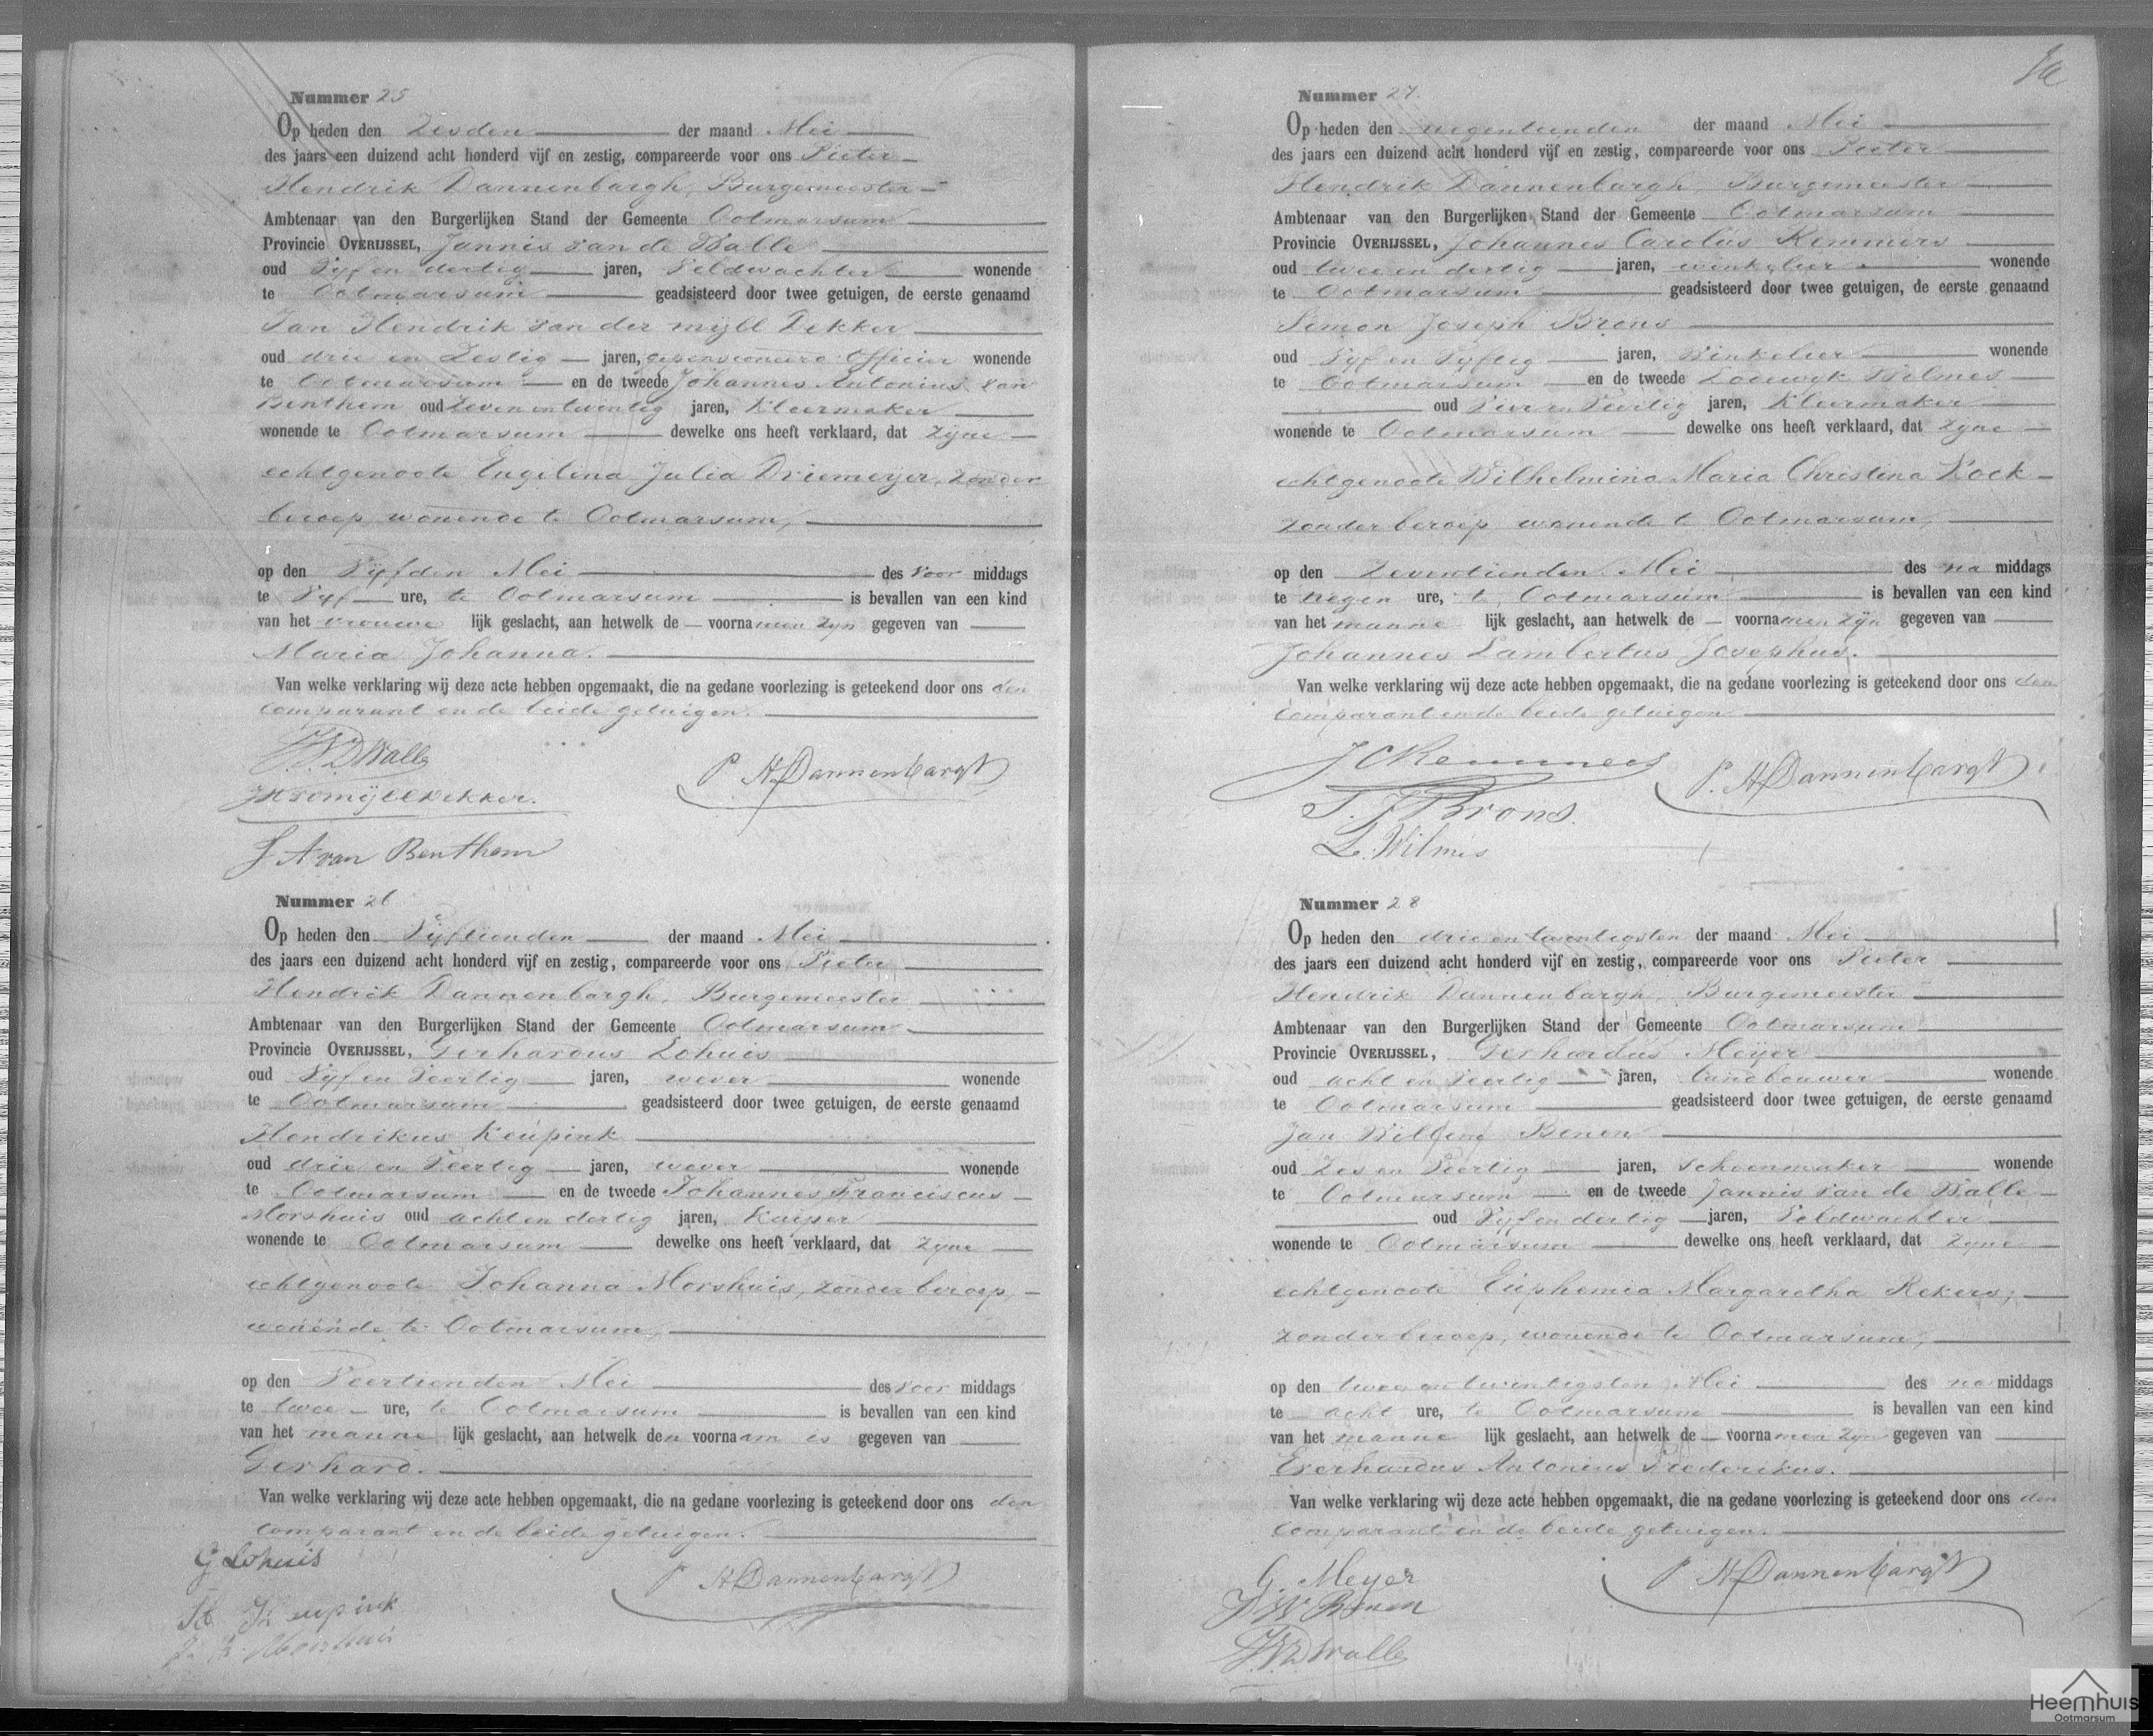 Nummer 25
Op heden den Zesden der maand Mei
des jaars een duizend acht honderd vijf en zestig, compareerde voor ons Pieter
Hendrik Dannenbargh, Burgemeester
Ambtenaar van den Burgerlijken Stand der Gemeente Ootmarsum
Provincie OVERIJSSEL, Jannis van de Walle
oud Vyf en dertig jaren, Veldwachter wonende
te Ootmarsum geadsisteerd door twee getuigen, de eerste genaamd
Jan Hendrik van der Myll Dekker
oud drie en Zestig jaren, gepensioneerd Officier wonende
te Ootmarsum en de tweede Johannes Antonius van
Benthem oud Zeven en twintig jaren, Kleermaker
wonende te Ootmarsum dewelke ons heeft verklaard, dat zyne
echtgenoote Engelina Julia Driemeyer, zonder
beroep, wonende te Ootmarsum,
op den Vyfden Mei des voor middags
te Vyf ure, te Ootmarsum is bevallen van een kind
van het vrouwe lijk geslacht, aan hetwelk de voornamen zyn gegeven van
Maria Johanna.
Van welke verklaring wij deze acte hebben opgemaakt, die na gedane voorlezing is geteekend door ons den
comparant en de beide getuigen.
J.V.D Walle
P. H Dannenbargh
JH vd Myll Dekker.
J A van Benthem
Nummer 26
Op heden den Vyftienden der maand Mei
des jaars een duizend acht honderd vijf en zestig, compareerde voor ons Pieter
Hendrik Dannenbargh, Burgemeester
Ambtenaar van den Burgerlijken Stand der Gemeente Ootmarsum
Provincie OVERIJSSEL, Gerhardus Lohuis
oud Vyf en Veertig jaren, wever wonende
te Ootmarsum geadsisteerd door twee getuigen, de eerste genaamd
Hendrikus Keupink
oud drie en Veertig jaren, wever wonende
te Ootmarsum en de tweede Johannes Franciscus
Morshuis oud acht en dertig jaren, Kuiper
wonende te Ootmarsum dewelke ons heeft verklaard, dat zyne
echtgenoote Johanna Morshuis, zonder beroep,
wonende te Ootmarsum,
op den Veertienden Mei des voor middags
te twee ure, te Ootmarsum is bevallen van een kind
van het manne lijk geslacht, aan hetwelk den voornaam is gegeven van
Gerhard.
Van welke verklaring wij deze acte hebben opgemaakt, die na gedane voorlezing is geteekend door ons den
comparant en de beide getuigen.
G Lohuis
P H Dannenbargh
H Keupink
J. F. Morshuis
Nummer 27.
Op heden den negentienden der maand Mei
des jaars een duizend acht honderd vijf en zestig, compareerde voor ons Pieter
Hendrik Dannenbargh, Burgemeester
Ambtenaar van den Burgerlijken Stand der Gemeente Ootmarsum
Provincie OVERIJSSEL, Johannes Carolus Remmers
oud twee en dertig jaren, winkelier wonende
te Ootmarsum geadsisteerd door twee getuigen, de eerste genaamd
Simon Joseph Brons
oud Vyf en Vyftig jaren, Winkelier wonende
te Ootmarsum en de tweede Lodewyk Wilmes
oud Vier en Veertig jaren, Kleermaker
wonende te Ootmarsum dewelke ons heeft verklaard, dat zyne
echtgenoote Wilhelmina Maria Christina Kock
zonder beroep, wonende te Ootmarsum,
op den Zeventienden Mei des na middags
te negen ure, te Ootmarsum is bevallen van een kind
van het manne lijk geslacht, aan hetwelk de voornamen zyn gegeven van
Johannes Lambertus Josephus.
Van welke verklaring wij deze acte hebben opgemaakt, die na gedane voorlezing is geteekend door ons den
comparant en de beide getuigen
J C Remmers
P. H Dannenbargh
S. J Brons.
L. Wilmes
Nummer 28
Op heden den drie en twentigsten der maand Mei
des jaars een duizend acht honderd vijf en zestig, compareerde voor ons Pieter
Hendrik Dannenbargh, Burgemeester
Ambtenaar van den Burgerlijken Stand der Gemeente Ootmarsum
Provincie OVERIJSSEL, Gerhardus Meyer
oud acht en Veertig jaren, landbouwer wonende
te Ootmarsum geadsisteerd door twee getuigen, de eerste genaamd
Jan Willem Benen
oud Zes en Veertig jaren, schoenmaker wonende
te Ootmarsum en de tweede Jannis van de Walle
oud Vyf en dertig jaren, Veldwachter
wonende te Ootmarsum dewelke ons heeft verklaard, dat zyne
echtgenoote Euphemia Margaretha Rekers,
zonder beroep, wonende te Ootmarsum,
op den twee en twintigsten Mei des na middags
te acht ure, te Ootmarsum is bevallen van een kind
van het manne lijk geslacht, aan hetwelk de voornamen zyn gegeven van
Everhardus Antonius Frederikus.
Van welke verklaring wij deze acte hebben opgemaakt, die na gedane voorlezing is geteekend door ons den
comparant en de beide getuigen.
G. Meyer
P H Dannenbargh
J W Benen
J.V.D Walle
Heemhuis
Ootmarsum